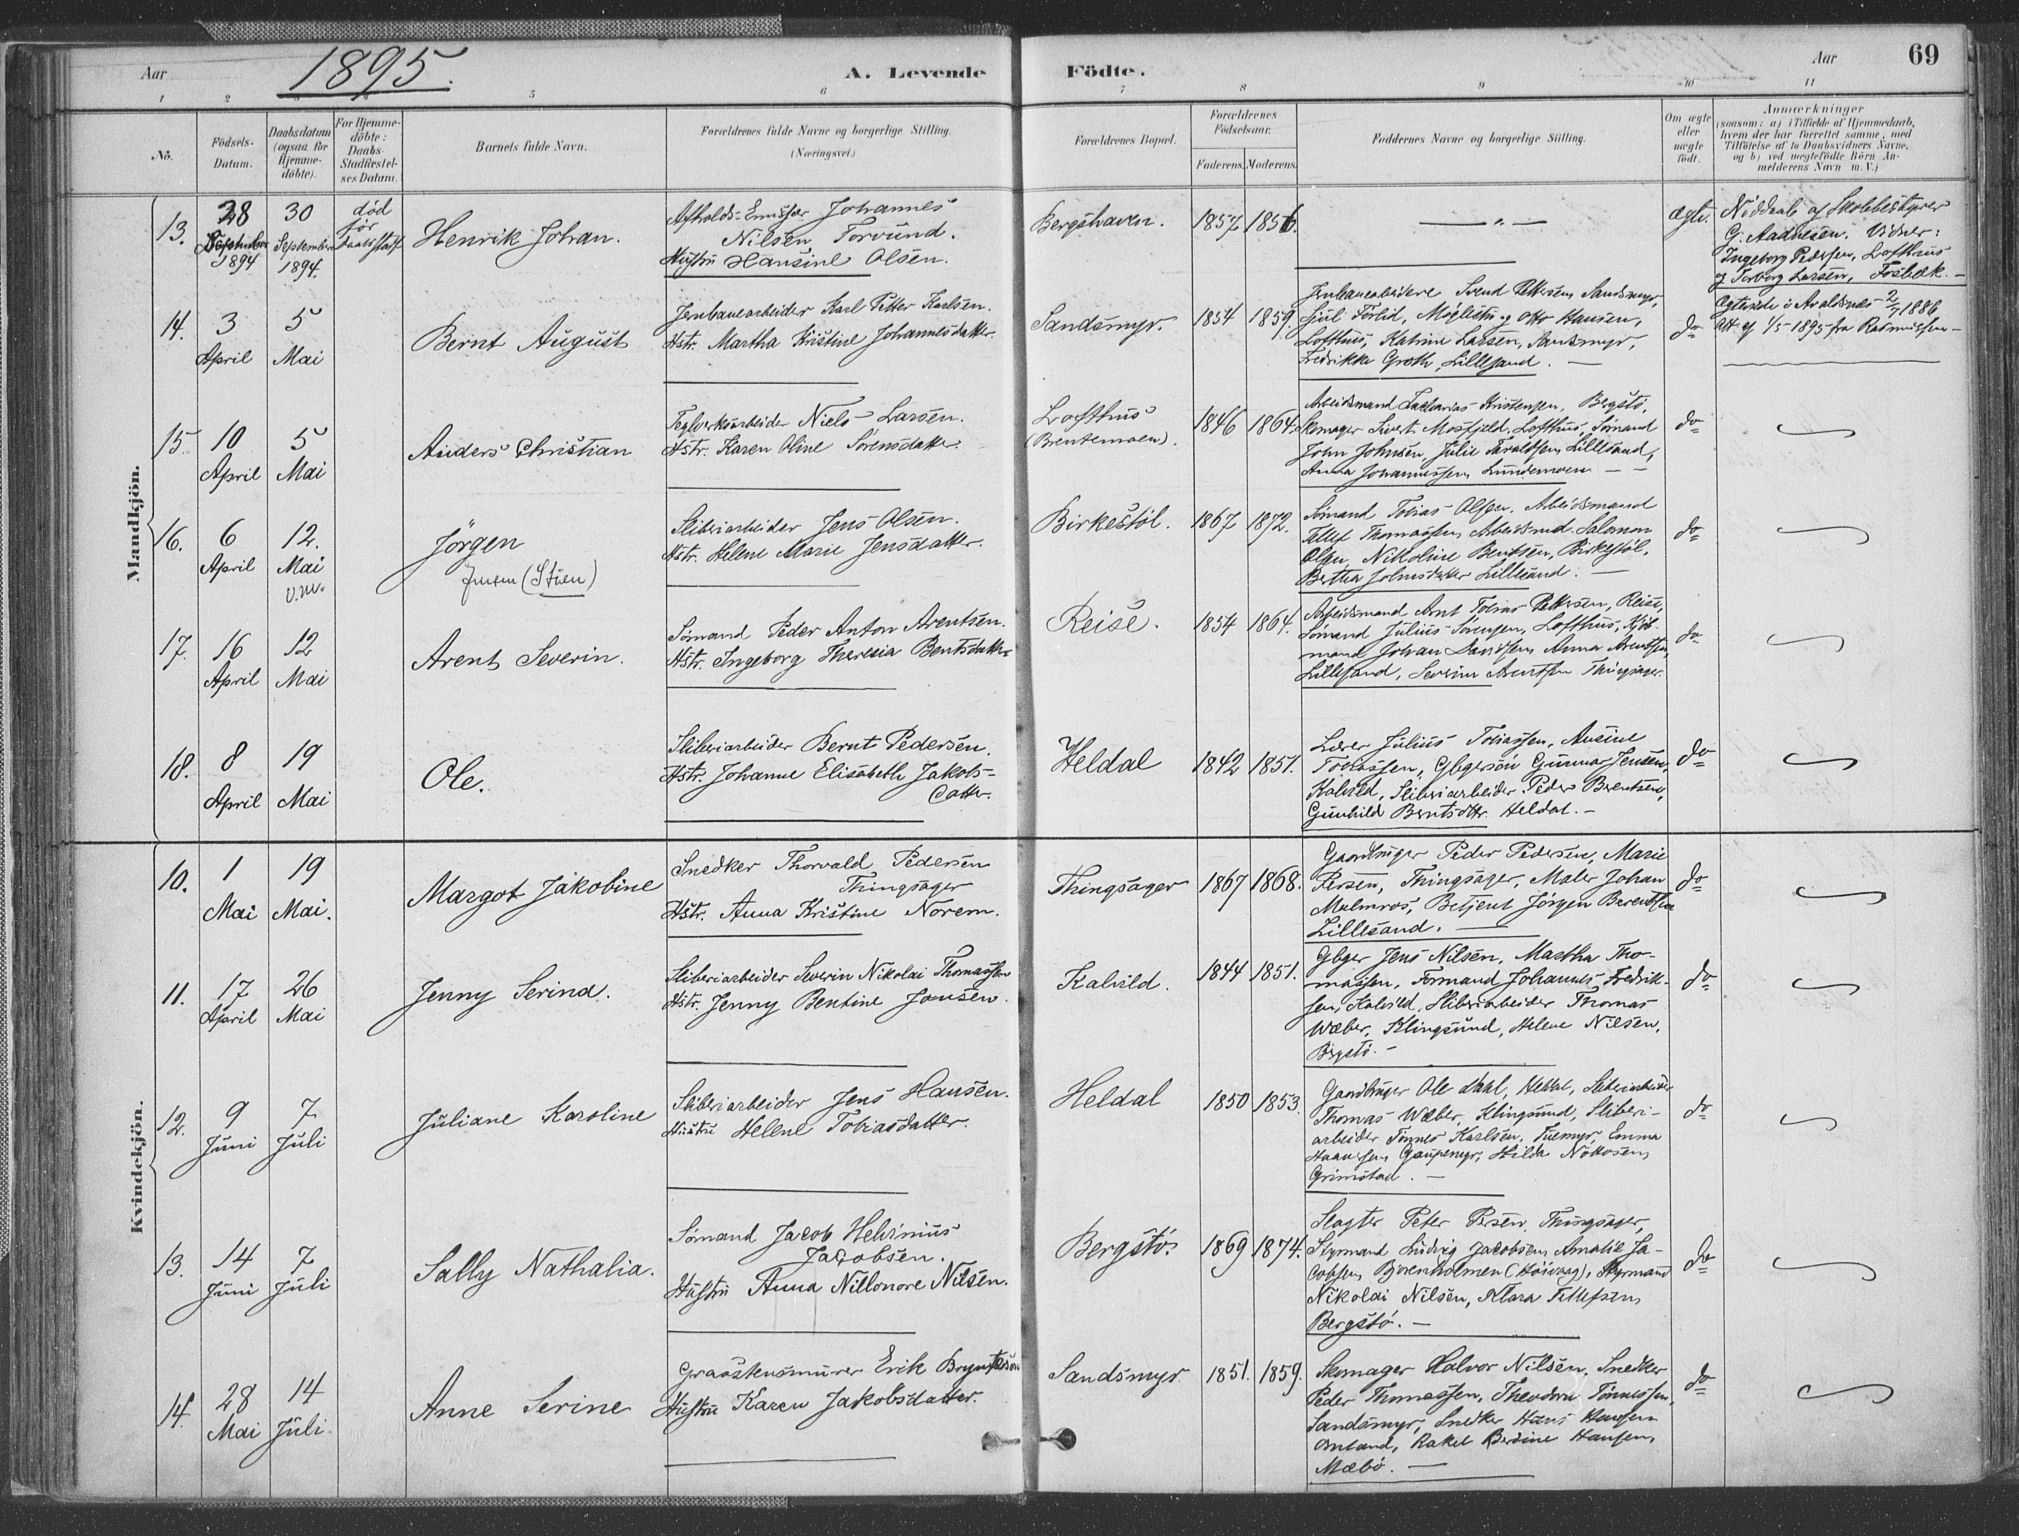 Aar
1895.
A. Levende
Födte.
Aar
69
1 2 3 4 5 6 7 8 9 10 11
No.
Födsels-
Datum.
Daabsdatum
(ogsaa for
Hjemme-
döbte).
For Hjemme-
döbte:
Daabs-
Stadfæstel-
ses Datum.
Barnets fulde Navn.
Forældrenes fulde Navne og borgerlige Stilling.
(Næringsvei.)
Forældrenes Bopæl.
Forældrenes
Födselsaar.
Faderens. Moderens.
Faddernes Navne og borgerlige Stilling.
Om ægte
eller
uægte
födt.
Anmærkninger
(saasom: a) i Tilfælde af Hjemmedaab,
hvem der har forrettet samme, med
Tilföielse af to Daabsvidners Navne,
og b) ved uægtefödte Börn An-
melderens Navn m.V.)
Mandkjön.
13.
28
September
1894
30
September
1894.
död
för
Henrik Johan.
Johannes
Nilsen Torvund.
Hustru Hansine Olsen.
Bergshaven.
1857 1856.
— " —
Ægte.
Nöddaab af
G. Aadnesen. Vidner:
Ingeborg Pedersen, Lofthus
Larsen, Fosbæk.
14.
3
April
5
Mai
Bernt August
Jernbanearbeider Karl Petter Karlsen.
Hstr. Martha Kristine Johannesdatter.
Sandsmyr.
1854 1859.
Jernbanearbeidere Svend Pettersen Sandsmyr,
Otto Hansen,
Lofthus, Katrine Larsen, Sandsmyr,
Fredrikke Groth, Lillesand. —
do
Ægteviede i Avaldsnes 2/7 1886
1/5 1895 fra
15.
10
April
5
Mai
Anders Christian
Teglverksarbeider Niels Larsen.
Hstr. Karen Oline Sørensdatter.
Lofthus
(Brentemoen).
1846 1864.
Arbeidsmand Zacharias Kristensen, Bergstø,
Skomager Sivert Mosfjeld, Lofthus, Sømand
John Johnsen, Julie Taraldsen Lillesand,
Anna Johannessen Lundemoen — —
do
16.
6
April
12.
Mai
v.m.
Jörgen
Jensen (Støen)
Sliberiarbeider Jens Olsen.
Hstr. Helene Marie Jensdatter.
Birkestöl.
1867 1872.
Sømand Tobias Olsen, Arbeidsmand
Tellef Thomassen, Arbeidsmd. Salomon
Olsen, Nikoline Bentsen, Birkestöl,
Bertha Johnsdatter Lillesand. —
do
17.
16
April
12
Mai
Arent Severin.
Sømand Peder Anton Arentsen.
Hstr. Ingeborg Theresia Bentsdatter
Reise.
1854 1864.
Arbeidsmand Arnt Tobias Pettersen, Reise,
Sømand Julius Sørensen, Lofthus, Kjöb-
mand Johan Davidsen, Anna Arentsen,
Lillesand, Severine Arentsen Thingsager.
do
18.
8
April
19
Mai
Ole.
Sliberiarbeider Bernt Pedersen.
Hstr. Johanne Elisabeth Jakobs-
datter.
Heldal
1842 1851.
Lærer Julius Tobiassen, Ausine
Tobiassen, Gbgersøn Gunnar Jensen,
Kalvild, Sliberiarbeider Peder Berentsen,
Gunhild Berntsdtr. Heldal. —
do
Kvindekjön.
10.
1
Mai
19
Mai.
Margot Jakobine
Snedker Thorvald Pedersen
Thingsager
Hstr. Anna Kristine Norem.
Thingsager
1867 1868.
Gaardbruger Peder Pedersen, Marie
Persen, Thingsager, Maler Johan
Malmros, Betjent Jörgen Berentsen
Lillesand. —
do
11.
17
April
26
Mai
Jenny Serina.
Sliberiarbeider Severin Nikolai Thomassen
Hstr. Jenny Bentine Jansen.
Kalvild.
1844 1851.
Gbger Jens Nilsen, Martha Tho-
massen, Formand Johannes Fredrik-
sen, Kalvild, Sliberiarbeider Thomas
Wæber, Klingsund, Helene Nilsen,
Bergstö. —
do
12.
9
Juni
7
Juli
Juliane Karoline
Sliberiarbeider Jens Hansen.
Hustru Helene Tobiasdatter.
Heldal
1850 1853.
Gaardbruger Ole Dahl, Heldal, Sliberiarbeider
Thomas Wæber, Klingsund, Sliberi-
arbeider Tønnes Karlsen, Tuemyr, Emma
Gaupemyr, Hilda
Grimstad. —
do
13.
14
Juni
7
Juli
Sally Nathalia.
Sømand Jacob Helvinius
Jacobsen.
Hustru Anna Nillonore Nilsen.
Bergstö.
1869 1874.
Slagter Peter Persen, Thingsager,
Styrmand Ludvig Jacobsen, Amalie Ja-
cobsen Bjørenholmen (Höivaag), Styrmand
Nikolai Nilsen, Klara Tellefsen,
Bergstö. —
do
14.
28
Mai
14
Juli.
Anne Serine
Graastensmurer Erik Bryntesøn
Hustru Karen Jakobsdatter.
Sandsmyr
1851. 1859.
Skomager Halvor Nilsen, Snedker
Peder Thomassen, Theodora Tønnessen,
Sandsmyr, Snedker Hans Hansen
Rakel Bersine Hansen,
Mæbö. —
do